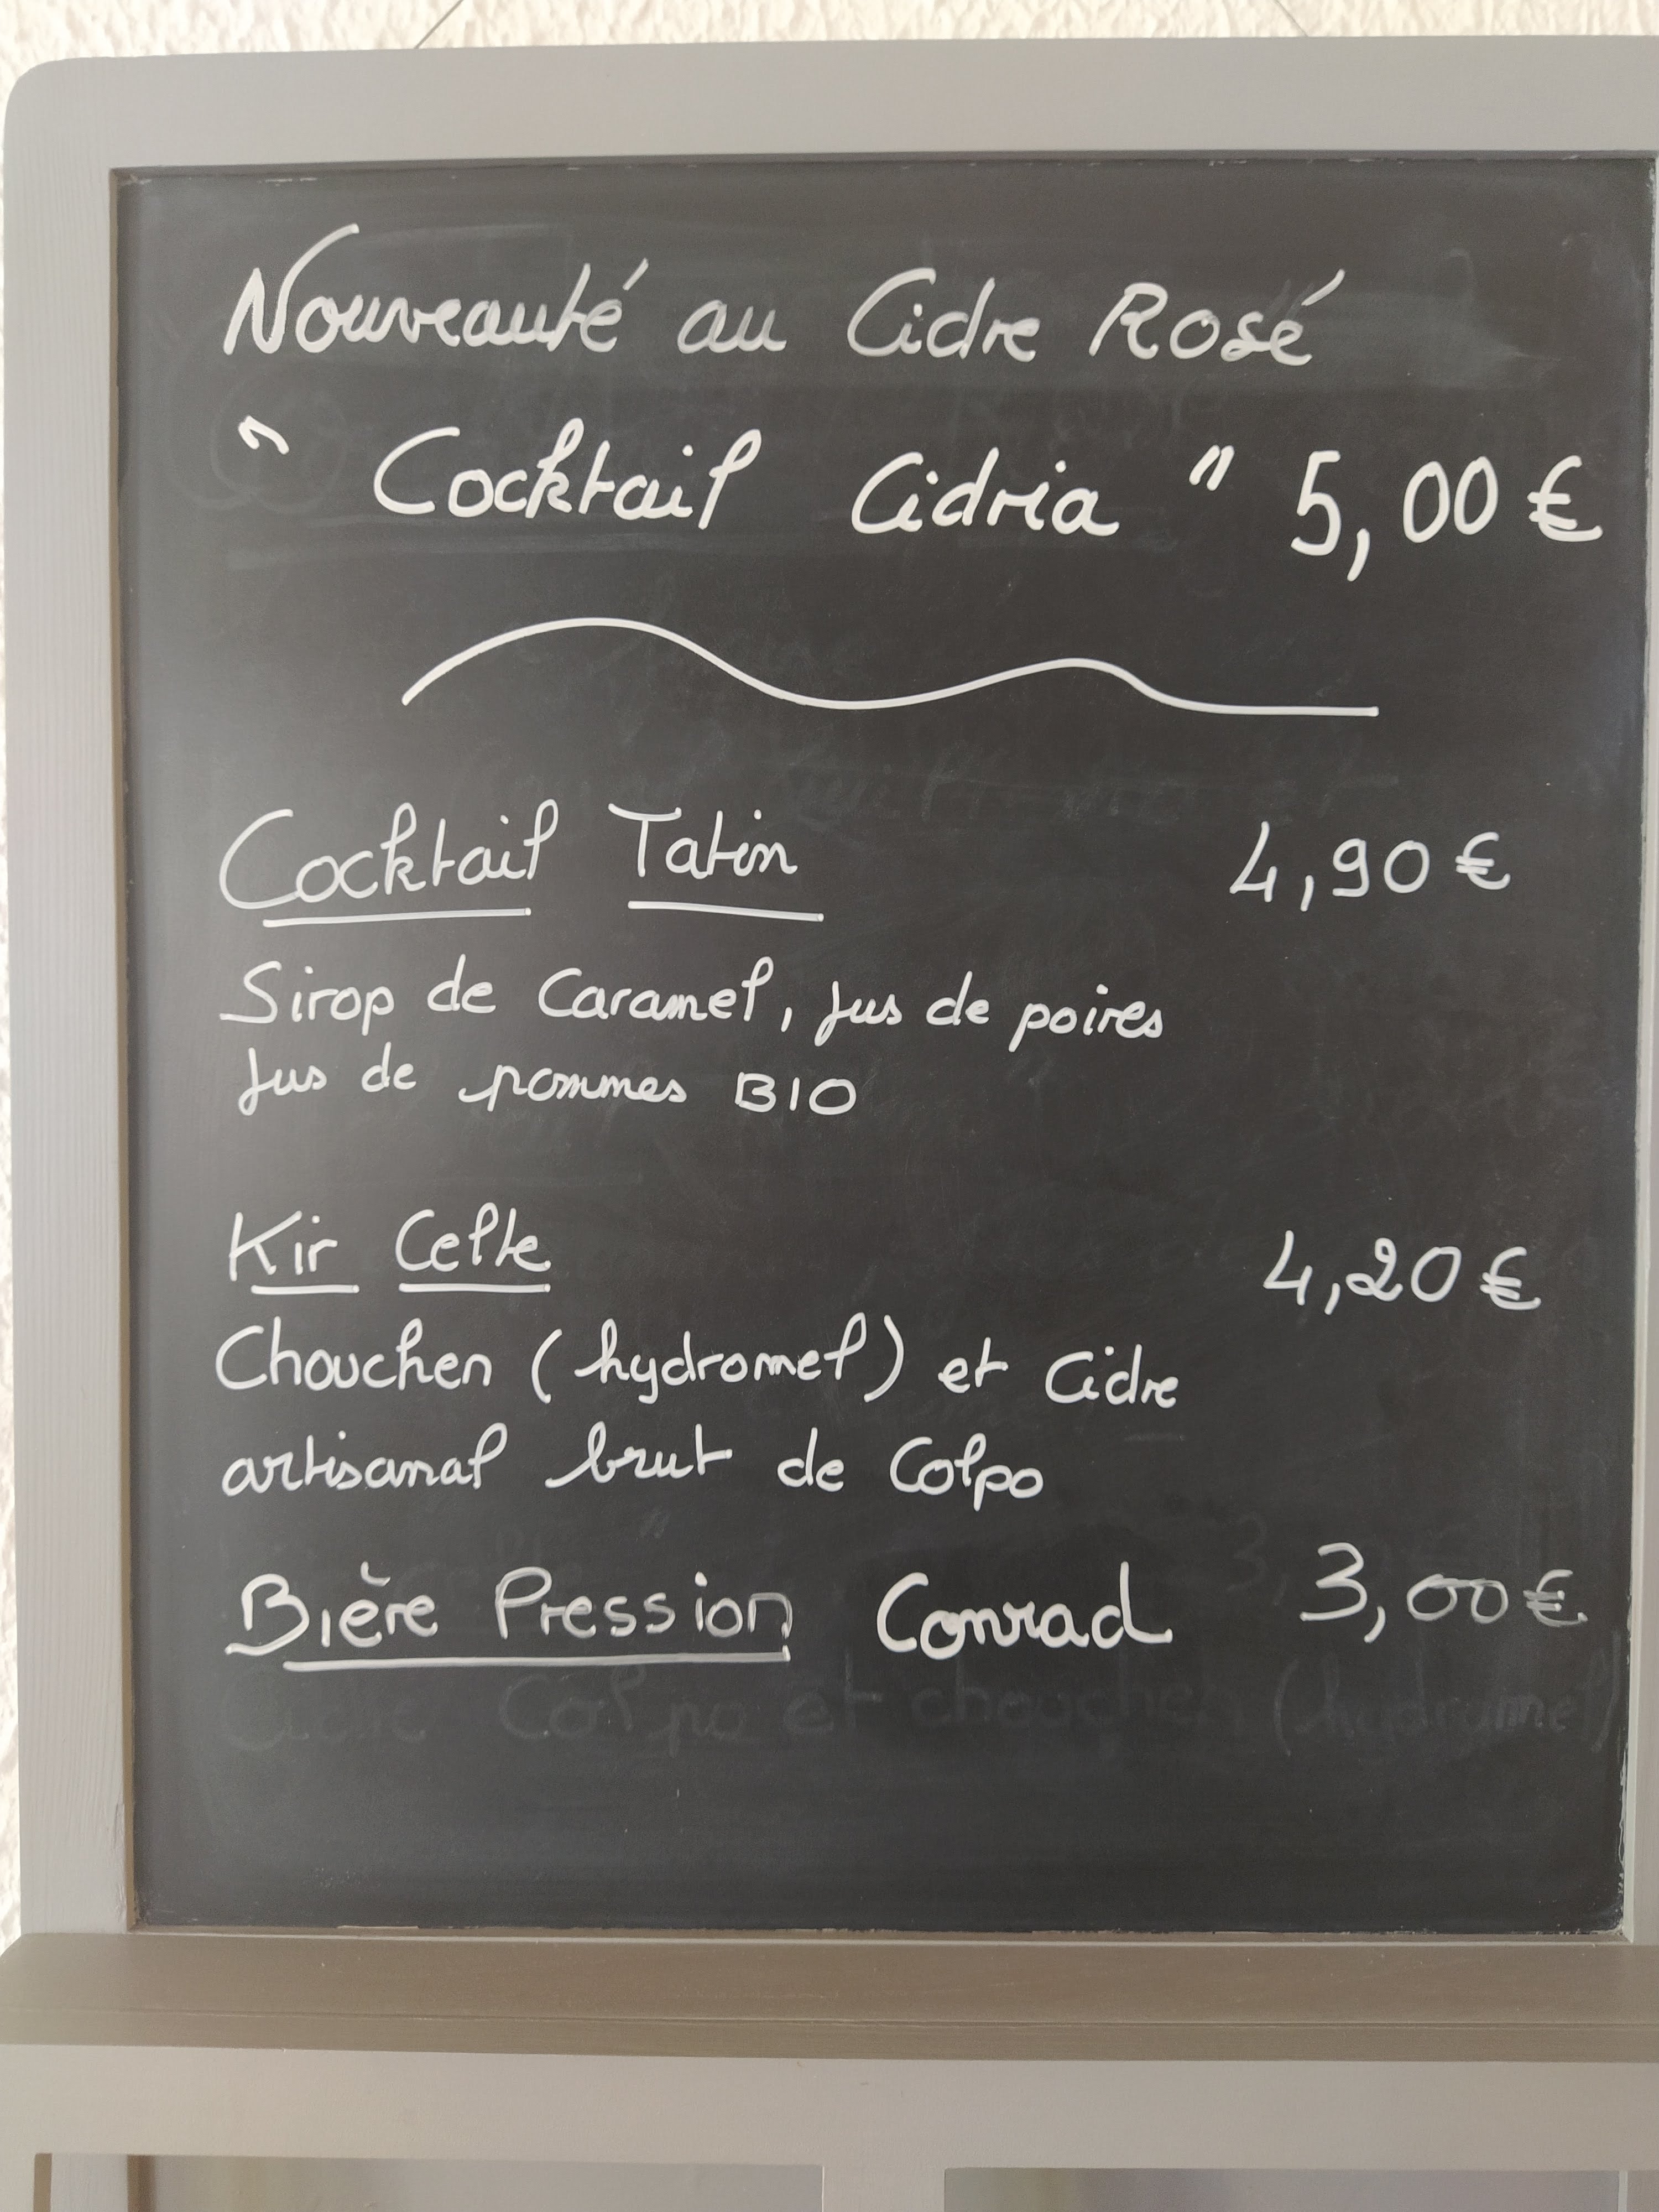 Nouveauté au Cidre Rosé
" Cocktail Cidria " 5,00 €
Cocktail Tatin 4,90 €
Sirop de Caramel, jus de poires
jus de pommes BIO
Kir Celte 4,20 €
Chouchen (hydromel) et Cidre
artisanal brut de Colpo
Bière Pression Conrad 3,00 €
Cidre Colpo et chouchen (hydromel)